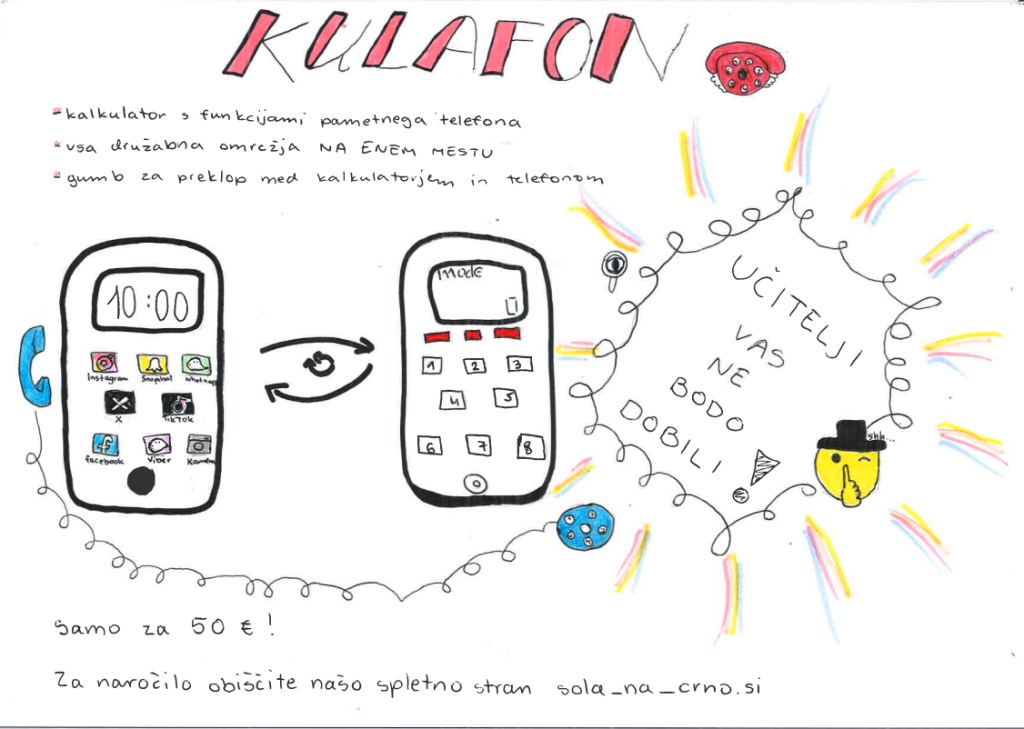 KULAFON
- kalkulator s funkcijami pametnega telefona
- vsa družabna omrežja NA ENEM MESTU
- gumb za preklop med kalkulatorjem in telefonom
10:00
Instagram
Snapchat
WhatsApp
X
TikTok
facebook
Viber
Kamera
mode
1 2 3
4 5
6 7 8
UČITELJI
VAS
NE
BODO
DOBILI !
shh...
samo za 50 € !
Za naročilo obiščite našo spletno stran sola_na_crno.si